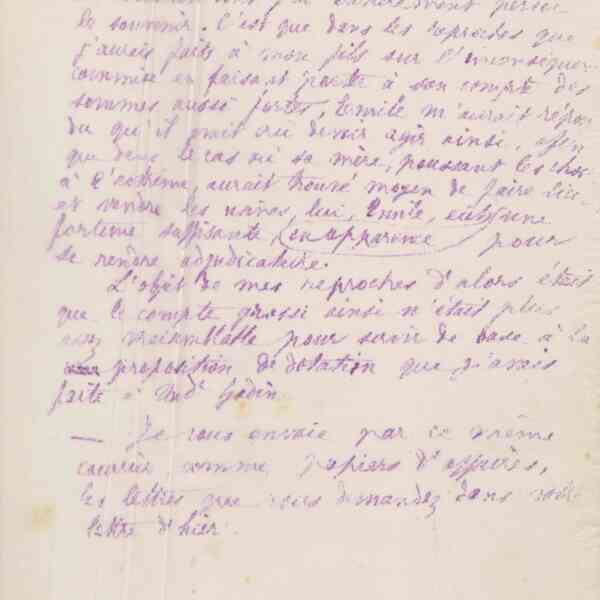 le souvenir. C'est que dans les reproches que
j'aurais faits à mon fils sur l'inconséquen
commise en faisant porter à son compte des
sommes aussi fortes, Emile m'aurait répon
du qu'il avait cru devoir agir ainsi, afin
que dans le cas où sa mère, poussant les chos
à l'extrême, aurait trouvé moyen de faire lici
et vendre les usines, lui, Emile, eut une
fortune suffisante, en apparence pour
se rendre adjudicataire.
L'objet de mes reproches d'alors était
que le compte grossi ainsi n'était plus
assez vraisemblable pour servir de base à la
proposition de dotation que j'avais
faite à Mde Godin.
— Je vous envoie par ce même
courrier, comme papiers d'affaires,
les lettres que vous demandez dans votre
lettre d'hier.